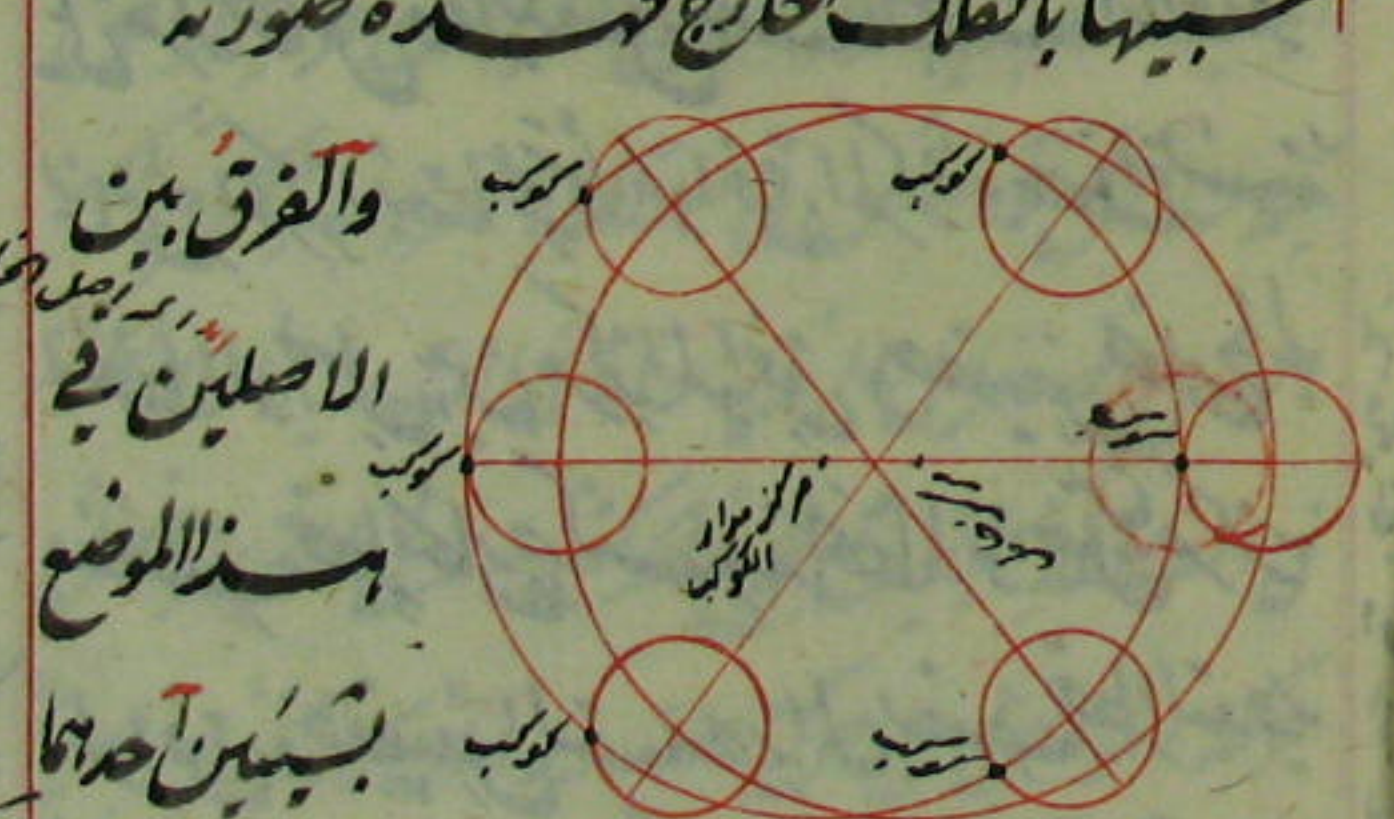 شبيها بالفلك الخارج فهذه صورته
والفرق بين
الاصلين في
هذا الموضع
بشيئين احدهما
كوكب
كوكب
كوكب
كوكب
مركز مدار
الكوكب
كوكب
كوكب